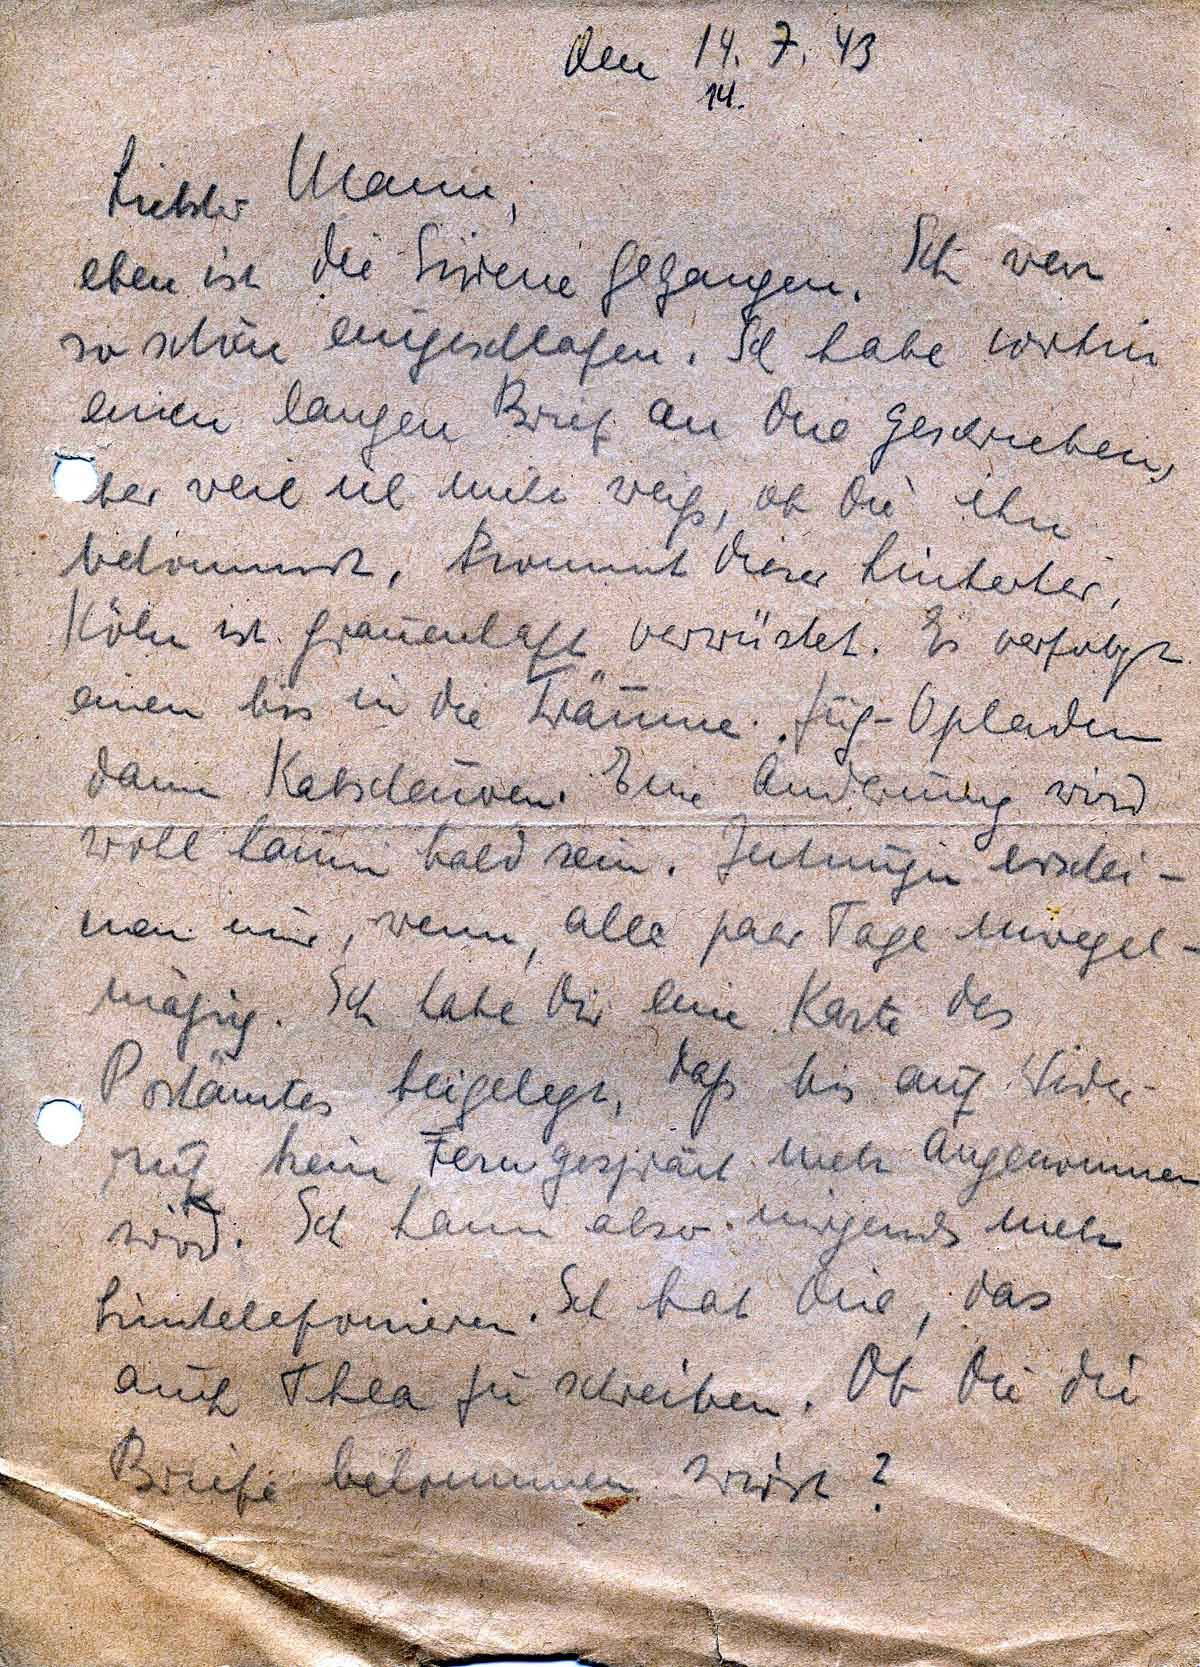 den 14. 7. 43
14.
Liebster Mann,
eben ist die Sirene gegangen. Ich war
so schön eingeschlafen. Ich habe vorhin
einen langen Brief an Dich geschrieben,
aber weil ich nicht weiß, ob Du ihn
bekommst, kommt dieser hinterher.
Köln ist grauenhaft verwüstet. Es verfolgt
einen bis in die Träume. Zug-Opladen
dann Kabscheuren. Eine Änderung wird
wohl kaum bald sein. Zeitungen erschei-
nen nur, wenn, alle paar Tage unregel-
mäßig. Ich habe Dir eine Karte des
Postamtes beigelegt, daß bis auf Wider-
ruf kein Ferngespräch mehr angenommen
wird. Ich kann also nirgends mehr
hintelefonieren. Ich bat Dich, das
auch Thea zu schreiben. Ob Du die
Briefe bekommen wirst?